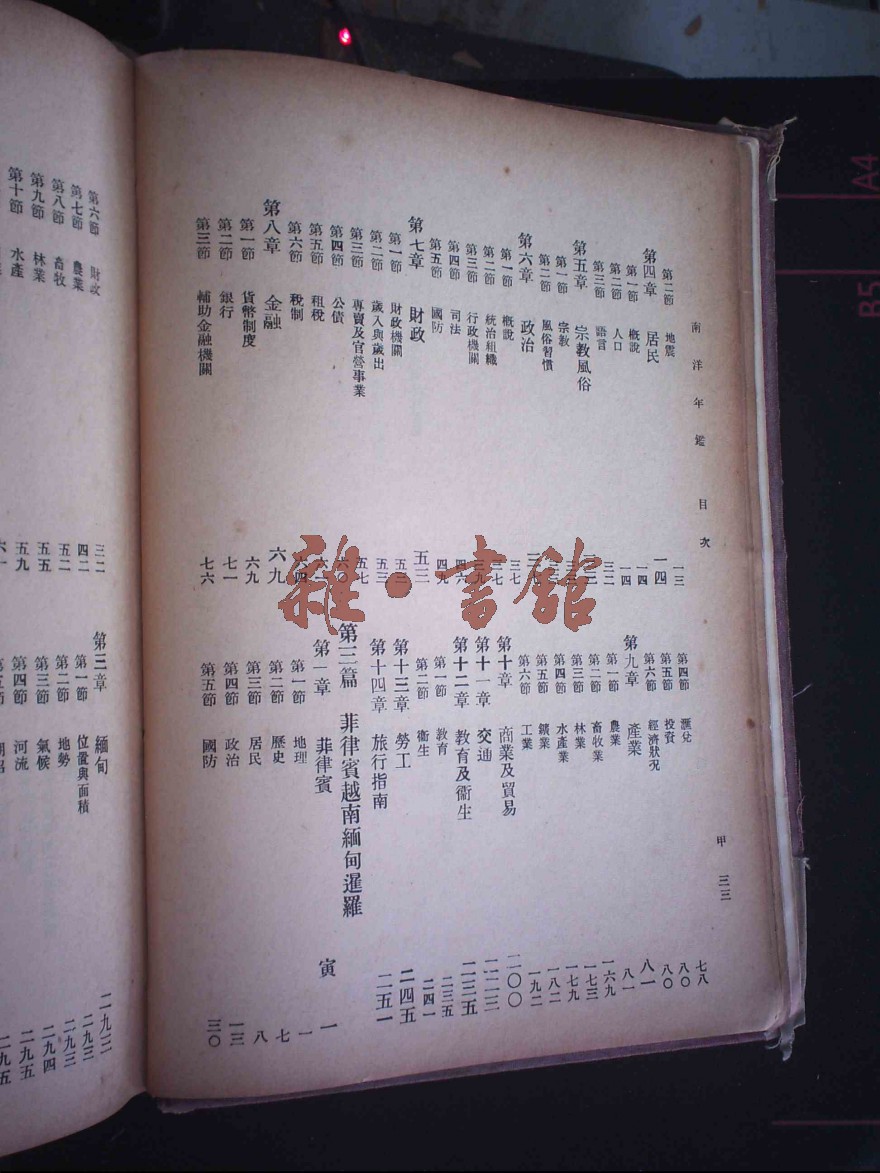 南洋年鑑 目次
甲 三三
第二節 地震 一三
第四章 居民 一四
第一節 概說 一四
第二節 人口
第三節 語言
第五章 宗教風俗
第一節 宗教
第二節 風俗習慣
第六章 政治
第一節 概說 三七
第二節 統治組織
第三節 行政機關
第四節 司法 四六
第五節 國防 四九
第七章 財政 五三
第一節 財政機關 五三
第二節 歲入與歲出 五三
第三節 專賣及官營事業 五七
第四節 公債 六〇
第五節 租稅
第六節 稅制
第八章 金融 六九
第一節 貨幣制度 六九
第二節 銀行 七一
第三節 輔助金融機關 七六
第四節 滙兌 七八
第五節 投資 八〇
第六節 經濟狀況 八〇
第九章 產業 八一
第一節 農業 八一
第二節 畜牧業 一六九
第三節 林業 一七三
第四節 水產業 一七九
第五節 鑛業 一八二
第六節 工業 一九二
第十章 商業及貿易 二〇〇
第十一章 交通
第十二章 教育及衞生 二三五
第一節 教育 二三五
第二節 衞生 二四一
第十三章 勞工 二四五
第十四章 旅行指南 二五一
第三篇 菲律賓越南緬甸暹羅 寅
第一章 菲律賓 一
第一節 地理 一
第二節 歷史 七
第三節 居民 八
第四節 政治 一三
第五節 國防 三〇
第六節 財政 三二
第七節 農業 四二
第八節 畜牧 五二
第九節 林業 五五
第十節 水產 五九
第三章 緬甸 二九三
第一節 位置與面積 二九三
第二節 地勢 二九三
第三節 氣候 二九四
第四節 河流 二九五
第五節 二九五
雜·書舘
A4
B5